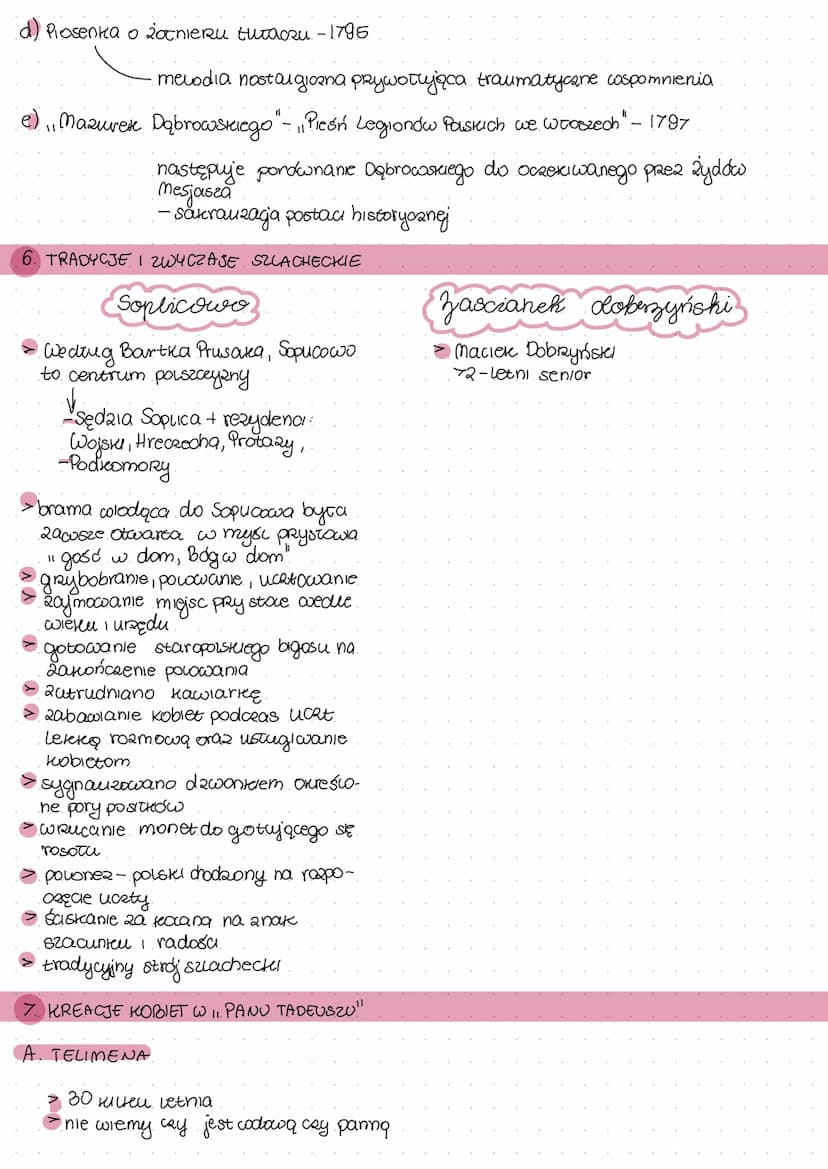 d) Piosenka o żołnierzu tułaczu - 1795
melodia nostalgiczna przywołująca traumatyczne wspomnienia
e) „Mazurek Dąbrowskiego" - „Pieśń Legionów Polskich we Włoszech" - 1797
następuje porównanie Dąbrowskiego do oczekiwanego przez Żydów
Mesjasza
- sakralizacja postaci historycznej
6. TRADYCJE I ZWYCZAJE SZLACHECKIE
Soplicowo
> Według Bartka Prusaka, Soplicowo
to centrum polszczyzny
- Sędzia Soplica + rezydenci:
Wojski, Hreczecha, Protazy,
- Podkomorzy
> brama wiodąca do Soplicowa była
zawsze otwarta w myśl przysłowia
„gość w dom, Bóg w dom"
> grzybobranie, polowanie, ucztowanie
> zajmowanie miejsc przy stole wedle
wieku i urzędu
> gotowanie staropolskiego bigosu na
zakończenie polowania
> zatrudniano kawiarkę
> zabawianie kobiet podczas uczt
lekką rozmową oraz usługiwanie
kobietom
> sygnalizowano dzwonkiem określo-
ne pory posiłków
> wrzucanie monet do gotującego się
rosołu
> polonez - polski chodzony na rozpo-
częcie uczty
> ściskanie za kolana na znak
szacunku i radości
> tradycyjny strój szlachecki
Zaścianek dobrzyński
> Maciek Dobrzyński
72-letni senior
7. KREACJE KOBIET W „PANU TADEUSZU"
A. TELIMENA
> 30 kilku letnia
> nie wiemy czy jest wdową czy panną